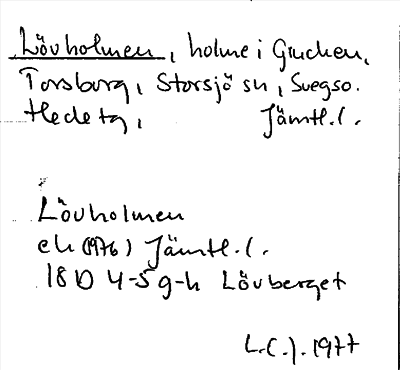 Lövholmen, holme i Grucken,
Torsborg, Storsjö sn, Svegs o.
Hede tg, Jämtl. l.
Lövholmen
ek (1976) Jämtl. l.
18D 4-5 g-h Lövberget
L.C.J. 1977